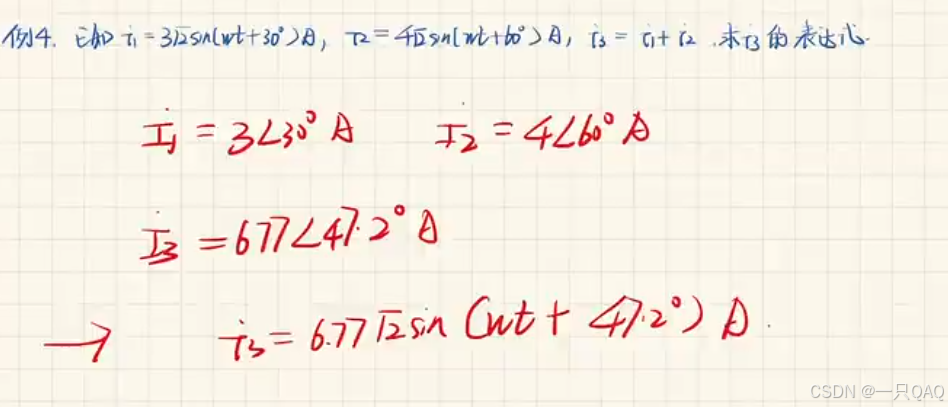 例4. 已知 i₁=3√2sin(wt+30°)A, i₂=4√2sin(wt+60°)A, i₃=i₁+i₂.求i₃的表达式.
İ₁=3∠30° A İ₂=4∠60° A
İ₃=677∠47.2° A
→ i₃=6.77√2sin(wt+47.2°)A.
CSDN @一只QAQ